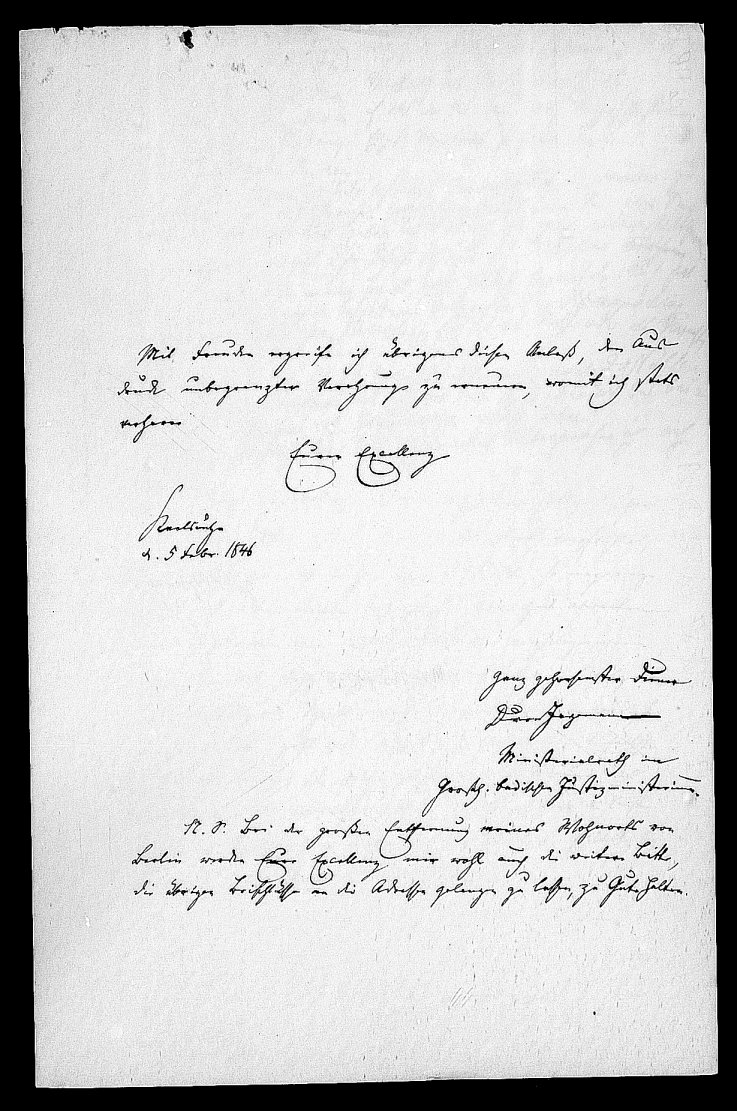 Mit Freuden ergreife ich übrigens diesen Anlaß, den Aus
druck unbegrenzter Verehrung zu erneuern, womit ich stets
verharre
Eurer Excellenz
Karlsruhe
d. 5 Febr. 1846
ganz gehorsamster Diener
Dr von Jagemann
Ministerialrath im
Grosh. badischen Justizministerium.
N. S. Bei der großen Entfernung meines Wohnorts von
Berlin werden Eure Excellenz mir wohl auch die weitere Bitte,
die übrigen Beischlüsse an die Adresse gelangen zu lassen, zu Gute halten.